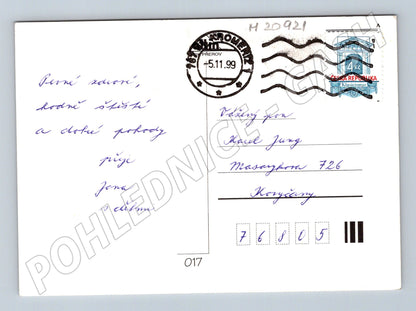 M 20921
767 01 KROMĚŘÍŽ 1
PŘEROV
-5.11.99
4 Kčs
ČESKÁ REPUBLIKA
Pevné zdraví,
hodně štěstí
a dobré pohody
přeje
Jana
s dětmi
Vážený pan
Karel Jung
Masarykova 726
Koryčany
76805
017
POHLEDNICE - GMCH